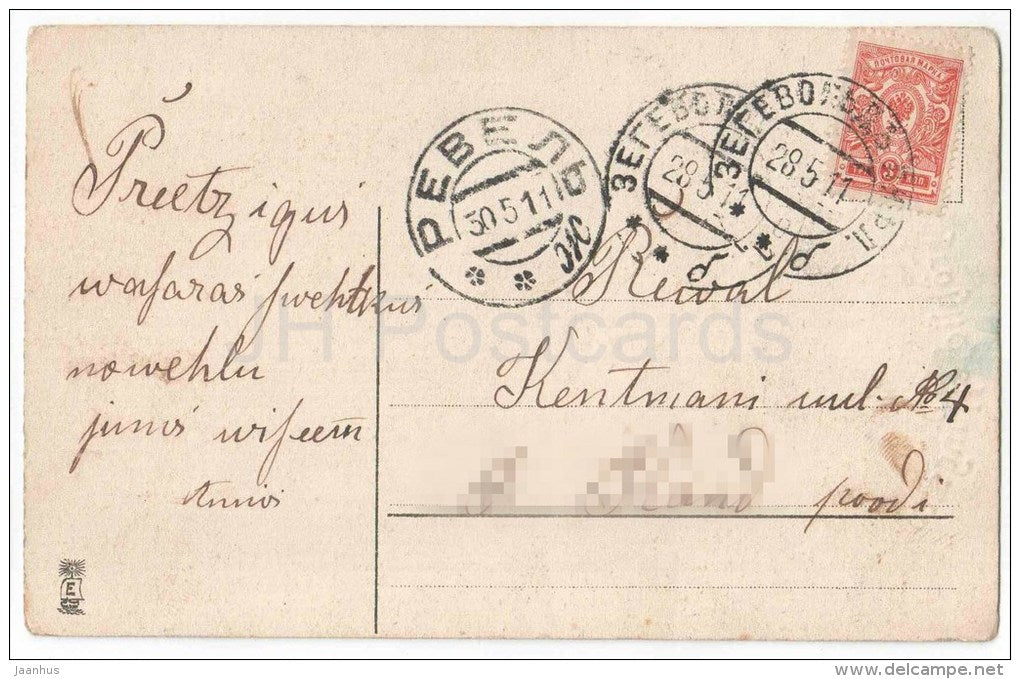 Preetzigus
wasaras swehtkus
nowehlu
jums wiseem
Annes
РЕВЕЛЬ
30.5.11
Ж
ЗЕГЕВОЛЬД
28.5.11
ЗЕГЕВОЛЬДЪ
28.5.11
ПОЧТОВАЯ МАРКА
3
КОП
Rewal
Kentmani uul. № 4
poodi
E
JH Postcards
jaanhus
www.delcampe.net